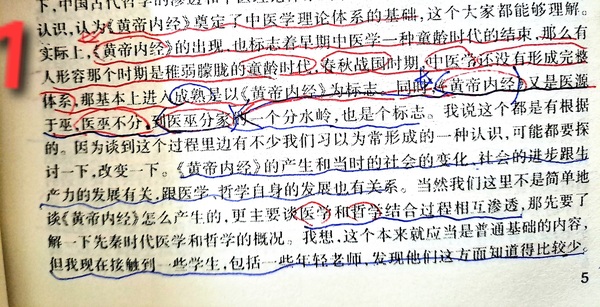 1
下,中国古代哲学的渗透和中医理论
认识,认为《黄帝内经》奠定了中医学理论体系的基础,这个大家都能够理解。
实际上,《黄帝内经》的出现,也标志着早期中医学一种童龄时代的结束,那么有
人形容那个时期是稚弱朦胧的童龄时代,春秋战国时期,中医学还没有形成完整
体系,那基本上进入成熟是以《黄帝内经》为标志。同时,《黄帝内经》又是医源
于巫,医巫不分,到医巫分家的一个分水岭,也是个标志。我说这个都是有根据
的。因为谈到这个过程里边有不少我们习以为常形成的一种认识,可能都要探
讨一下,改变一下。《黄帝内经》的产生和当时的社会的变化,社会的进步跟生
产力的发展有关,跟医学、哲学自身的发展也有关系。当然我们这里不是简单地
谈《黄帝内经》怎么产生的,更主要谈医学和哲学结合过程相互渗透,那先要了
解一下先秦时代医学和哲学的概况。我想,这个本来就应当是普通基础的内容,
但我现在接触到一些学生,包括一些年轻老师,发现他们这方面知道得比较少。
5